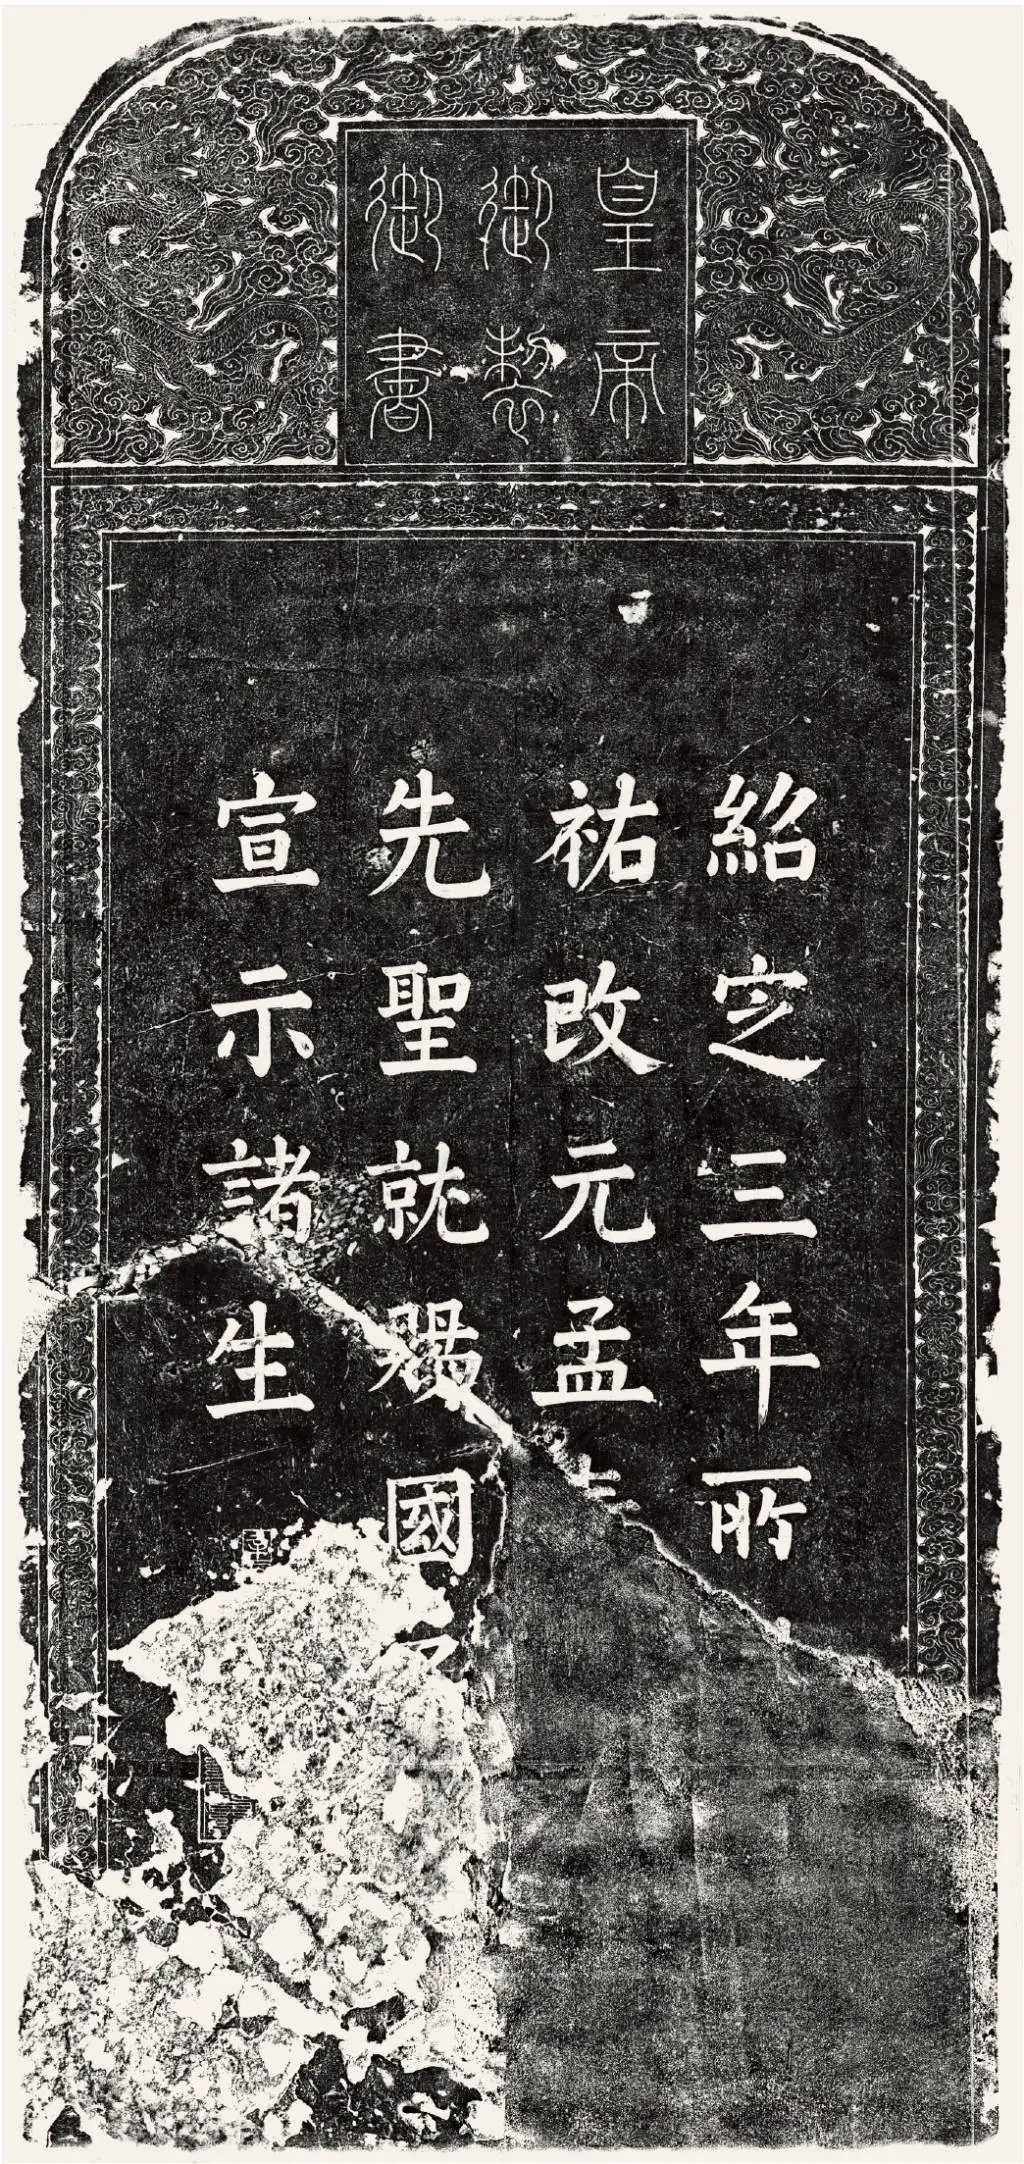 皇帝
御製
御書
紹定三年所
祐改元孟
先聖就賜國
宣示諸生